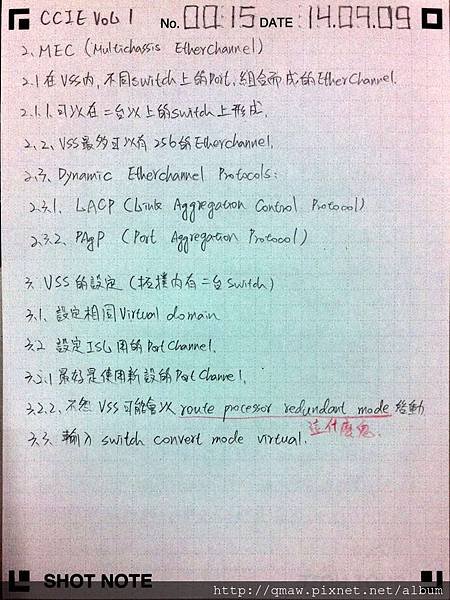 CCIE Vol 1 No. 00:15 DATE 14.09.09
2. MEC (Multichassis EtherChannel)
2.1 在VSS內, 不同switch上的Port, 組合而成的EtherChannel.
2.1.1. 可以在二台以上的switch上形成.
2.2. VSS最多可以有256的Etherchannel.
2.3. Dynamic Etherchannel Protocols:
2.3.1. LACP (Link Aggregation Control Protocol)
2.3.2. PAgP (Port Aggregation Protocol)
3. VSS的設定 (拓樸內有二台switch)
3.1. 設定相同Virtual domain
3.2 設定ISL用的PortChannel.
3.2.1 最好是使用新設的PortChannel.
3.2.2. 不然VSS可能會以route pocessor redundant mode啟動
這什麼鬼.
3.3. 輸入 switch convert mode virtual.
SHOT NOTE
http://qmaw.pixnet.net/album